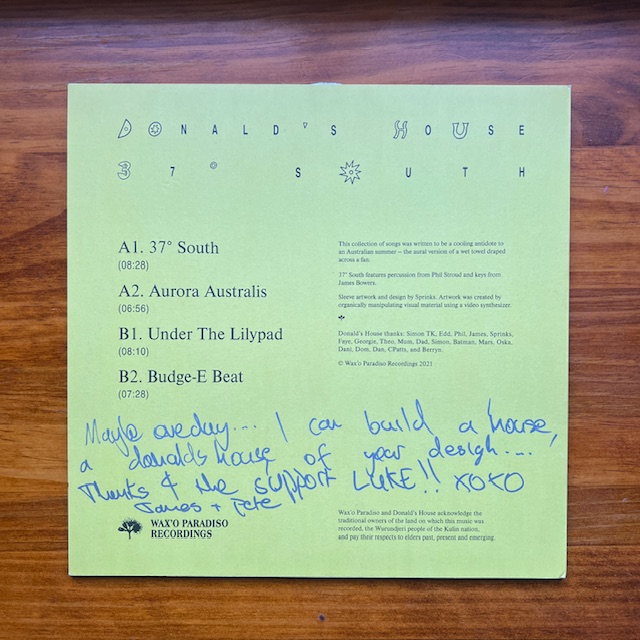 DONALD'S HOUSE
37° SOUTH
A1. 37° South
(08:28)
A2. Aurora Australis
(06:56)
B1. Under The Lilypad
(08:10)
B2. Budge-E Beat
(07:28)
This collection of songs was written to be a cooling antidote to
an Australian summer – the aural version of a wet towel draped
across a fan.
37° South features percussion from Phil Stroud and keys from
James Bowers.
Sleeve artwork and design by Sprinks. Artwork was created by
organically manipulating visual material using a video synthesizer.
Donald's House thanks: Simon TK, Edd, Phil, James, Sprinks,
Faye, Georgie, Theo, Mum, Dad, Simon, Batman, Mars, Oska,
Dani, Dom, Dan, CPatts, and Berryn.
© Wax'o Paradiso Recordings 2021
Maybe oneday... I can build a house,
a donalds house of your design...
Thanks 4 the support LUKE!! XOXO
James + Pete
WAX'O PARADISO
RECORDINGS
Wax'o Paradiso and Donald's House acknowledge the
traditional owners of the land on which this music was
recorded, the Warundjeri people of the Kalin nation,
and pay their respects to elders past, present and emerging